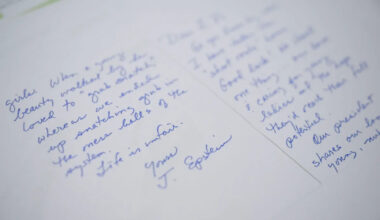 girls. When a young
beauty walked by he
loved to "grab snatch,"
whereas we ended
up snatching grub in
the mess halls of the
system. Life is unfair.
Yours
J. Epstein
Dear L.N.
As you know by now,
I have taken the
"short route" home.
Good luck! We shared
one thing... our love
& caring for young
ladies and the hope
they'd reach their full
potential.
Our president
shares our love
young,